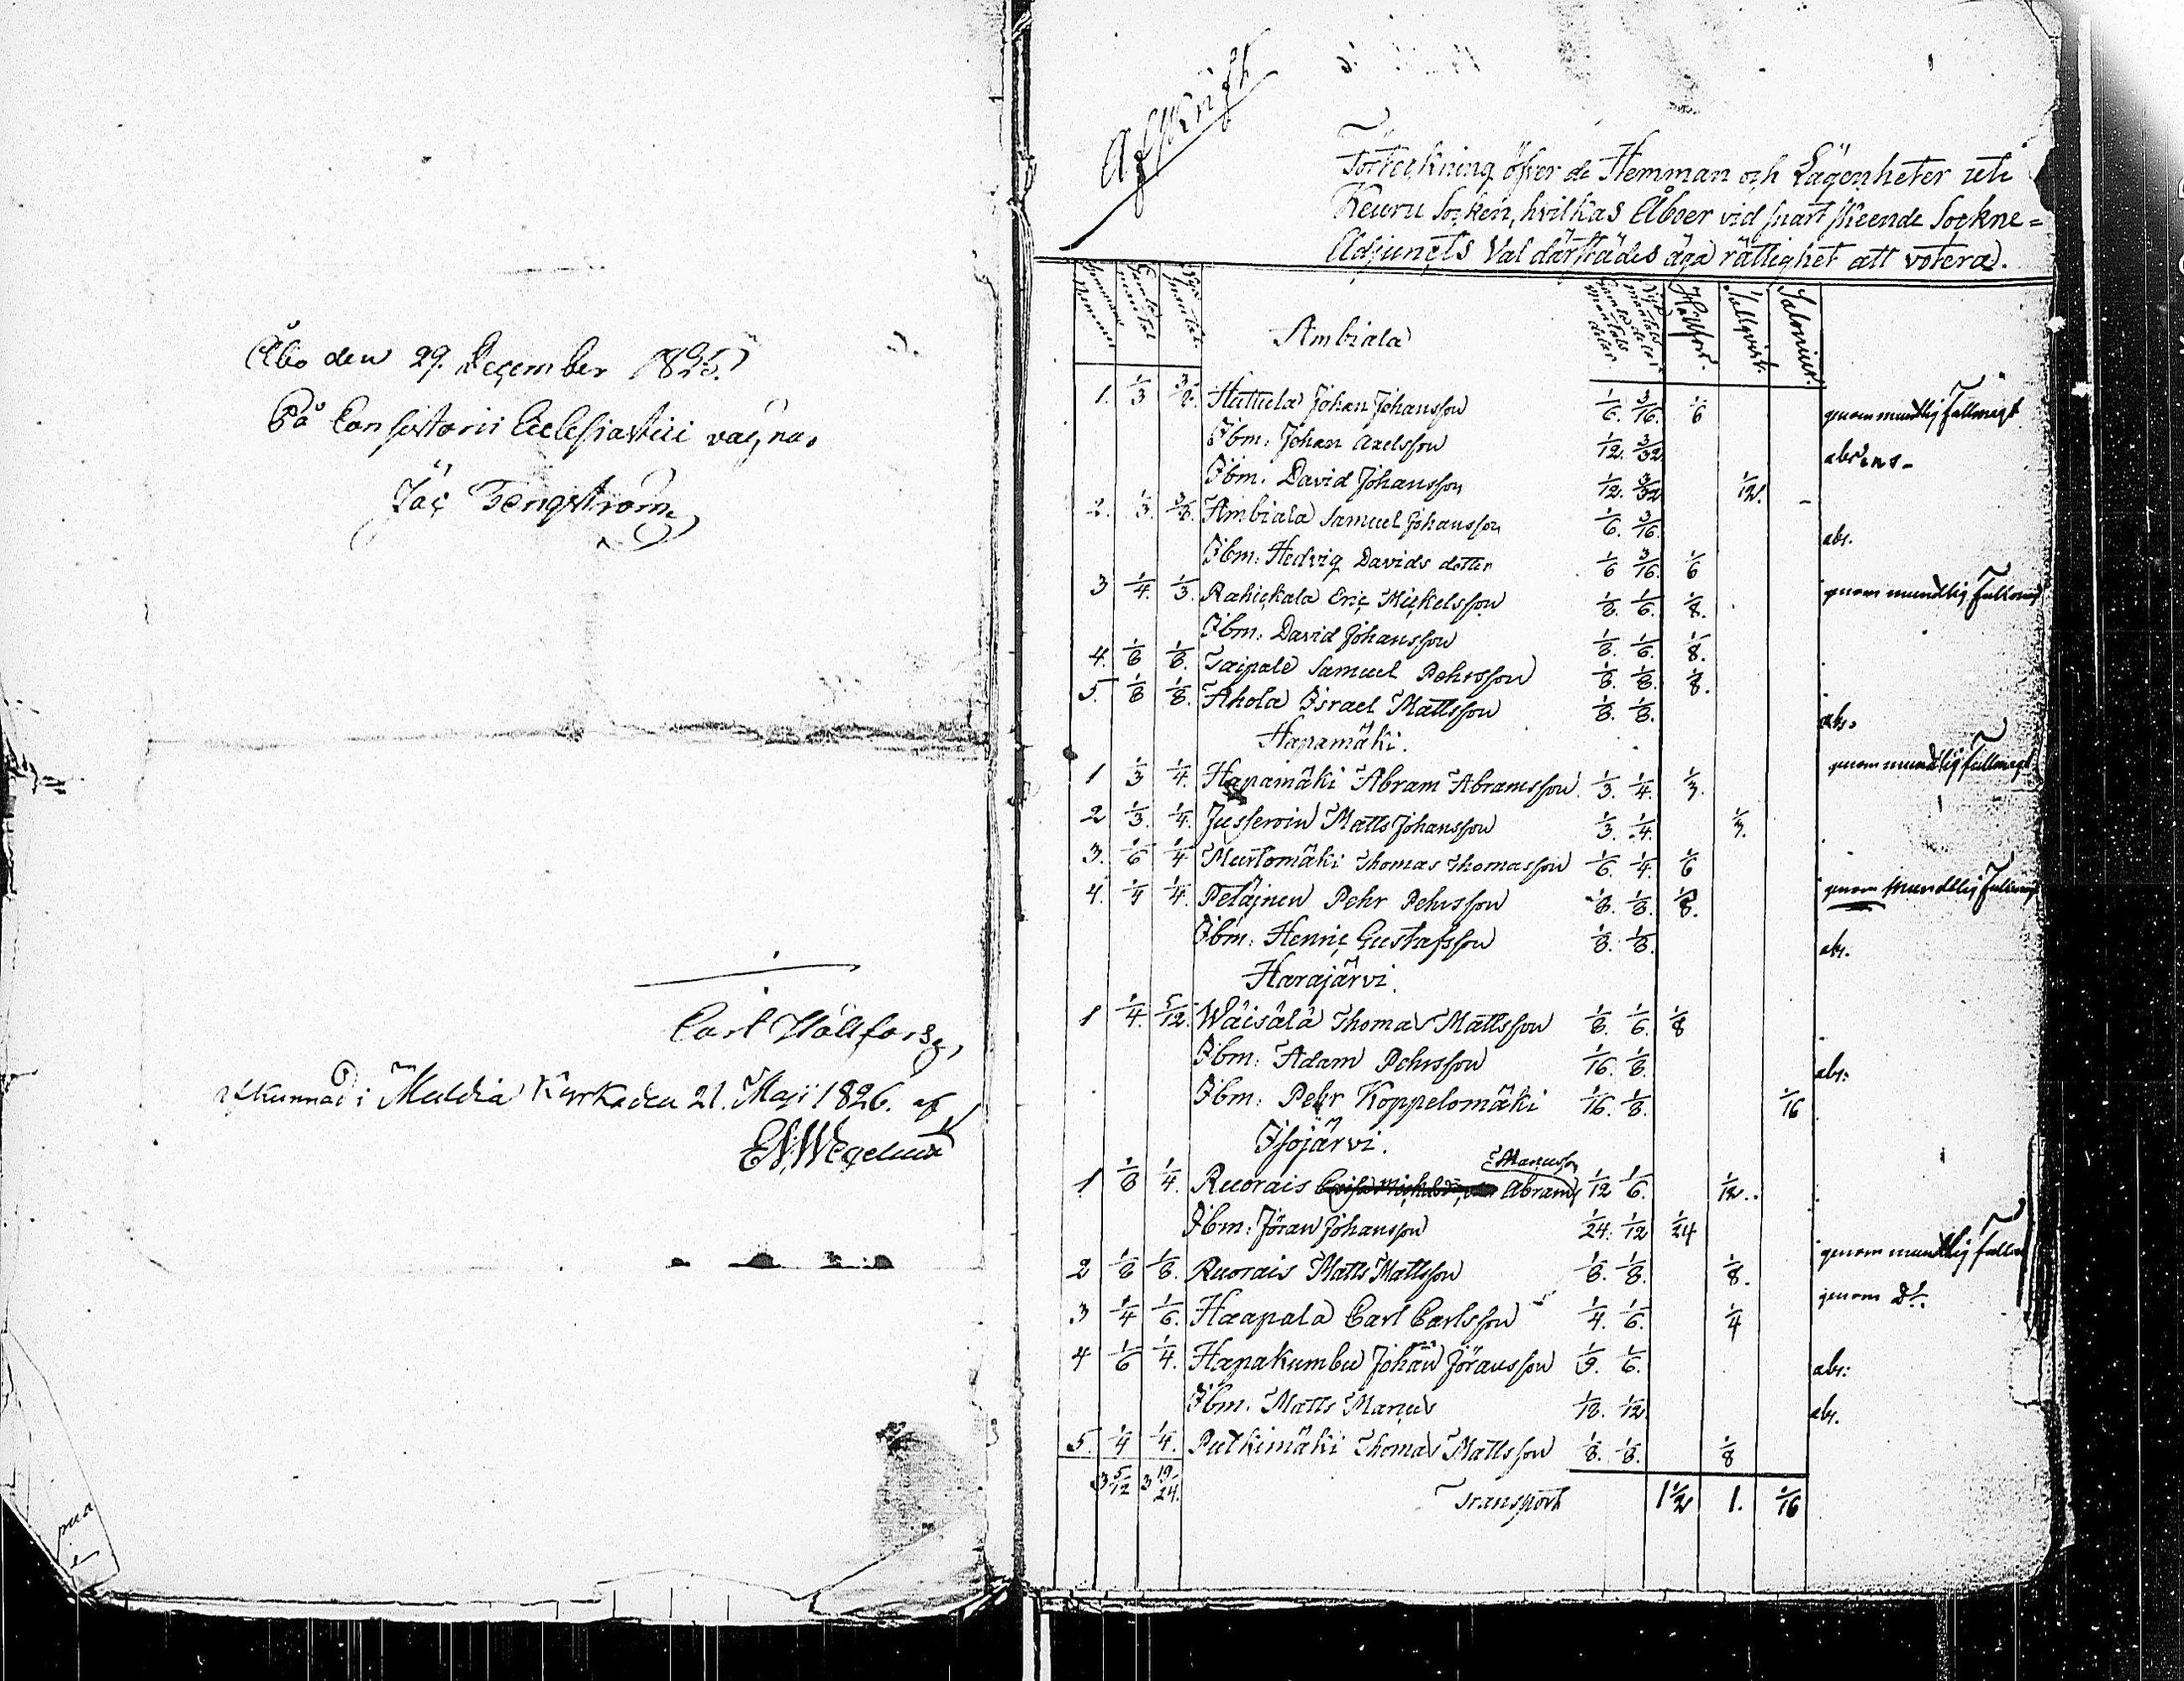 Åbo den 29. December 1825.
På Consistorii Ecclesiastici vägna.
Jac Tengström
Carl Hällfors,
i Muldia Kyrka den 21. Maji 1826. af
Afskrift
Förteckning öfver de Hemman och Lägenheter uti
Keuru Socken, hvilkas Åboer vid snart skeende Sockne=
Adjuncts Val därstädes äga rättighet att votera.
Hemmans Nummer Gamla mantal Nya mantal Ambiala Gamla mantals delar Nya mantals delar Hällfors. Tallqvist. Salonius.
1. 1/3 3/8. Huttula Johan Johansson 1/6. 3/16. 1/6 genom mundtlig Fullmagt
Ibm: Johan Axelsson 1/12. 3/32. absens
Ibm. David Johansson 1/12. 3/32 1/12.
2. 1/3. 3/8. Ambiala Samuel Johansson 1/6. 3/16. abs.
Ibm: Hedvig Davids dotter 1/6 3/16. 1/6
3 1/4. 1/3. Rahickala Eric Mickelsson 1/8. 1/6. 1/8. genom mundtlig Fullmagt
Ibm: David Johansson 1/8. 1/6. 1/8.
4. 1/8 1/8. Taipale Samuel Pehrsson 1/8. 1/8. 1/8.
5. 1/8 1/8. Ahola Israel Mattsson 1/8. 1/8. abs.
Hapamäki.
1 1/3 1/4. Hapamäki Abram Abramsson 1/3. 1/4. 1/3. genom mundtlig fullmagt
2 1/3. 1/4. Jusseroin Matts Johansson 1/3. 1/4. 1/3.
3. 1/6 1/4 Murtomäki Thomas Thomasson 1/6. 1/4. 1/6
4. 1/4 1/4. Petäjnen Pehr Pehrsson 1/8. 1/8. 1/8. genom mundtlig Fullmagt
Ibm: Henric Gustafsson 1/8. 1/8. abs.
Harajärvi.
1 1/4. 5/12. Wäisälä Thomas Mattsson 1/8. 1/6. 1/8
Ibm: Adam Pehrsson 1/16. 1/8. abs:
Ibm: Pehr Koppelomäki 1/16. 1/8. 1/16
Isojärvi.
1 1/8 1/4. Ruorais Abram Manusson 1/12 1/6. 1/12.
Ibm: Jöran Johansson 1/24. 1/12 1/24
2 1/8 1/8. Ruorais Matts Mattsson 1/8. 1/8. 1/8. genom mundtlig fullm
3 1/4 1/6. Haapala Carl Carlsson 1/4. 1/6. 1/4 genom Do.
4 1/6 1/4. Hapakumbu Johan Jöransson 1/9. 1/6. abs:
Ibm. Matts Manus 1/18. 1/12. abs.
5. 1/4 1/4. Putkimäki Thomas Mattsson 1/8. 1/8. 1/8
3 5/12 3 19/24. Transport 1 1/2 1. 1/16